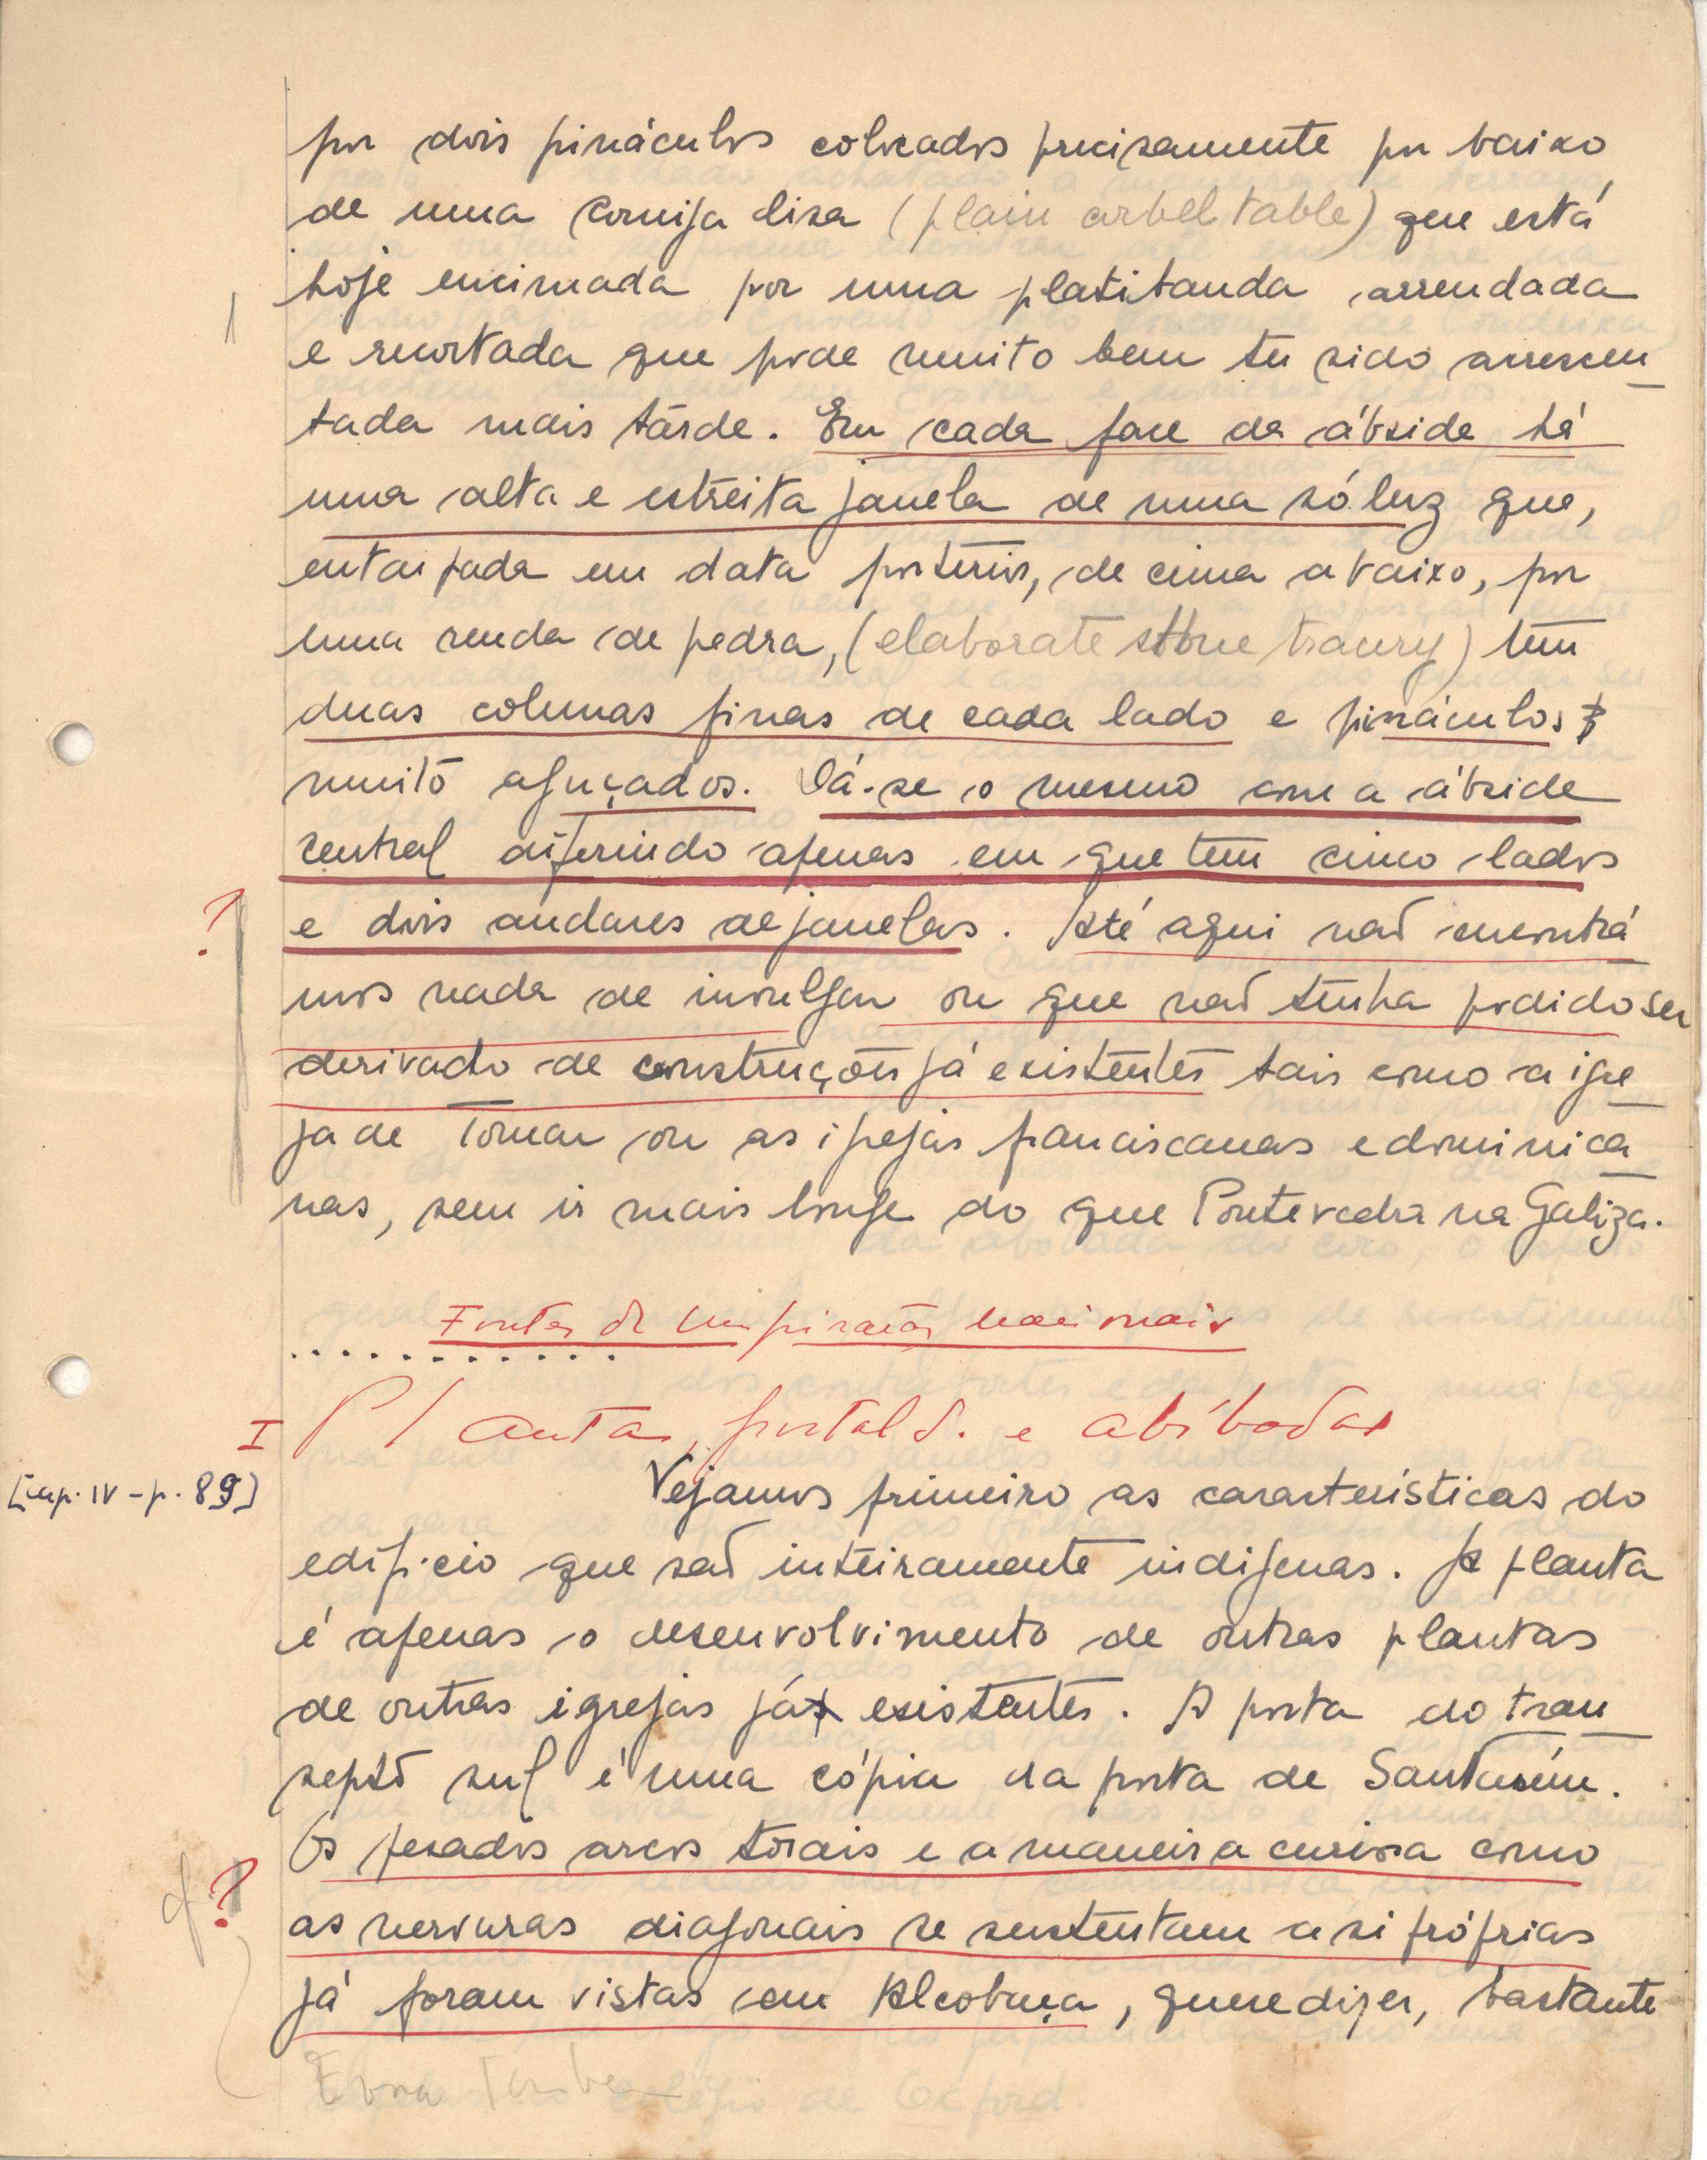 por dois pináculos colocados precisamente por baixo
de uma cornija lisa (plain corbel table) que está
hoje encimada por uma platibanda arrendada
e recortada que pode muito bem ter sido acrescen
tada mais tarde. Em cada face da ábside há
uma alta e estreita janela de uma só luz que,
entaipada em data posterior, de cima a baixo, por
uma renda de pedra, (elaborate stone tracery) tem
duas colunas finas de cada lado e pináculos
muito aguçados. Dá-se o mesmo com a ábside
central diferindo apenas em que tem cinco lados
? e dois andares de janelas. Até aqui não encontrá
mos nada de invulgar ou que não tenha podido ser
derivado de construções já existentes tais como a igre
ja de Tomar ou as igrejas franciscanas e dominica
nas, sem ir mais longe do que Pontevedra na Galiza.
Fontes de inspiração nacionais
...........
I Planta, portal S. e abóbodas
[cap. IV - p. 89] Vejamos primeiro as características do
edifício que são inteiramente indígenas. A planta
é apenas o desenvolvimento de outras plantas
de outras igrejas já existentes. A porta do tran
septo sul é uma cópia da porta de Santarém.
Os pesados arcos torais e a maneira curiosa como
? as nervuras diagonais se sustentam a si próprias
já foram vistas em Alcobaça, quere dizer, bastante